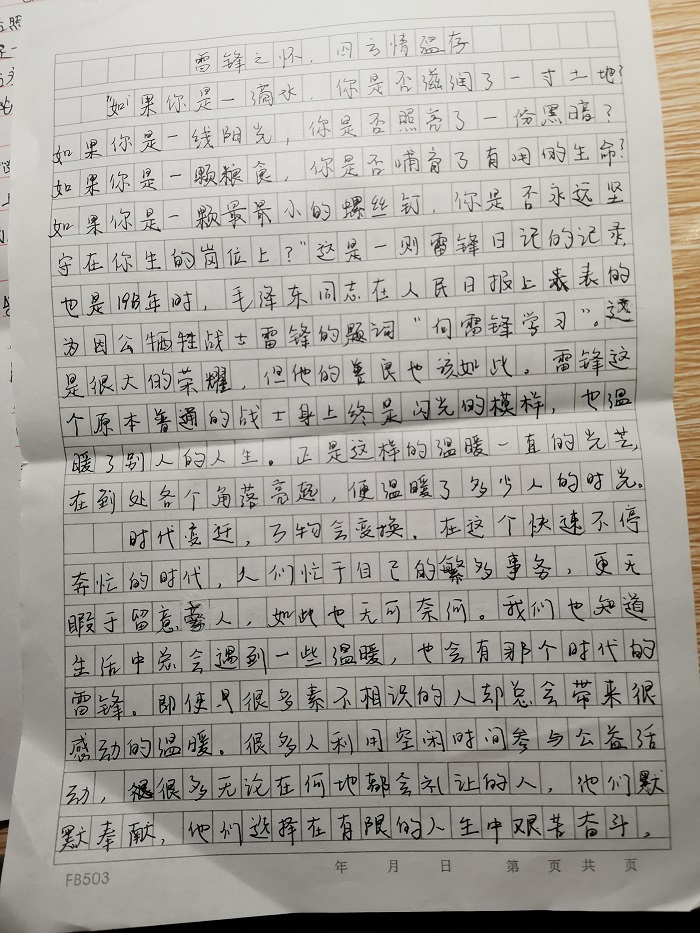 雷锋之怀，四方情温存
"如果你是一滴水，你是否滋润了一寸土地？
如果你是一线阳光，你是否照亮了一份黑暗？
如果你是一颗粮食，你是否哺育了有用的生命？
如果你是一颗最最小的螺丝钉，你是否永远坚
守在你生的岗位上？"这是一则雷锋日记的记录，
也是1963年时，毛泽东同志在人民日报上表的
为因公牺牲战士雷锋的题词"向雷锋学习"。这
是很大的荣耀，但他的善良也该如此。雷锋这
个原本普通的战士身上终是闪光的模样，也温
暖了别人的人生。正是这样的温暖一直的光芒，
在到处各个角落亮起，便温暖了多少人的时光。
时代变迁，万物会变换。在这个快速不停
奔忙的时代，人们忙于自己的繁多事务，更无
暇于留意人，如此也无可奈何。我们也知道
生活中总会遇到一些温暖，也会有那个时代的
雷锋。即使只很多素不相识的人却总会带来很
感动的温暖。很多人利用空闲时间参与公益活
动，很多无论在何地都会礼让的人，他们默
默奉献，他们选择在有限的人生中艰苦奋斗，
年 月 日 第 页 共 页
FB503